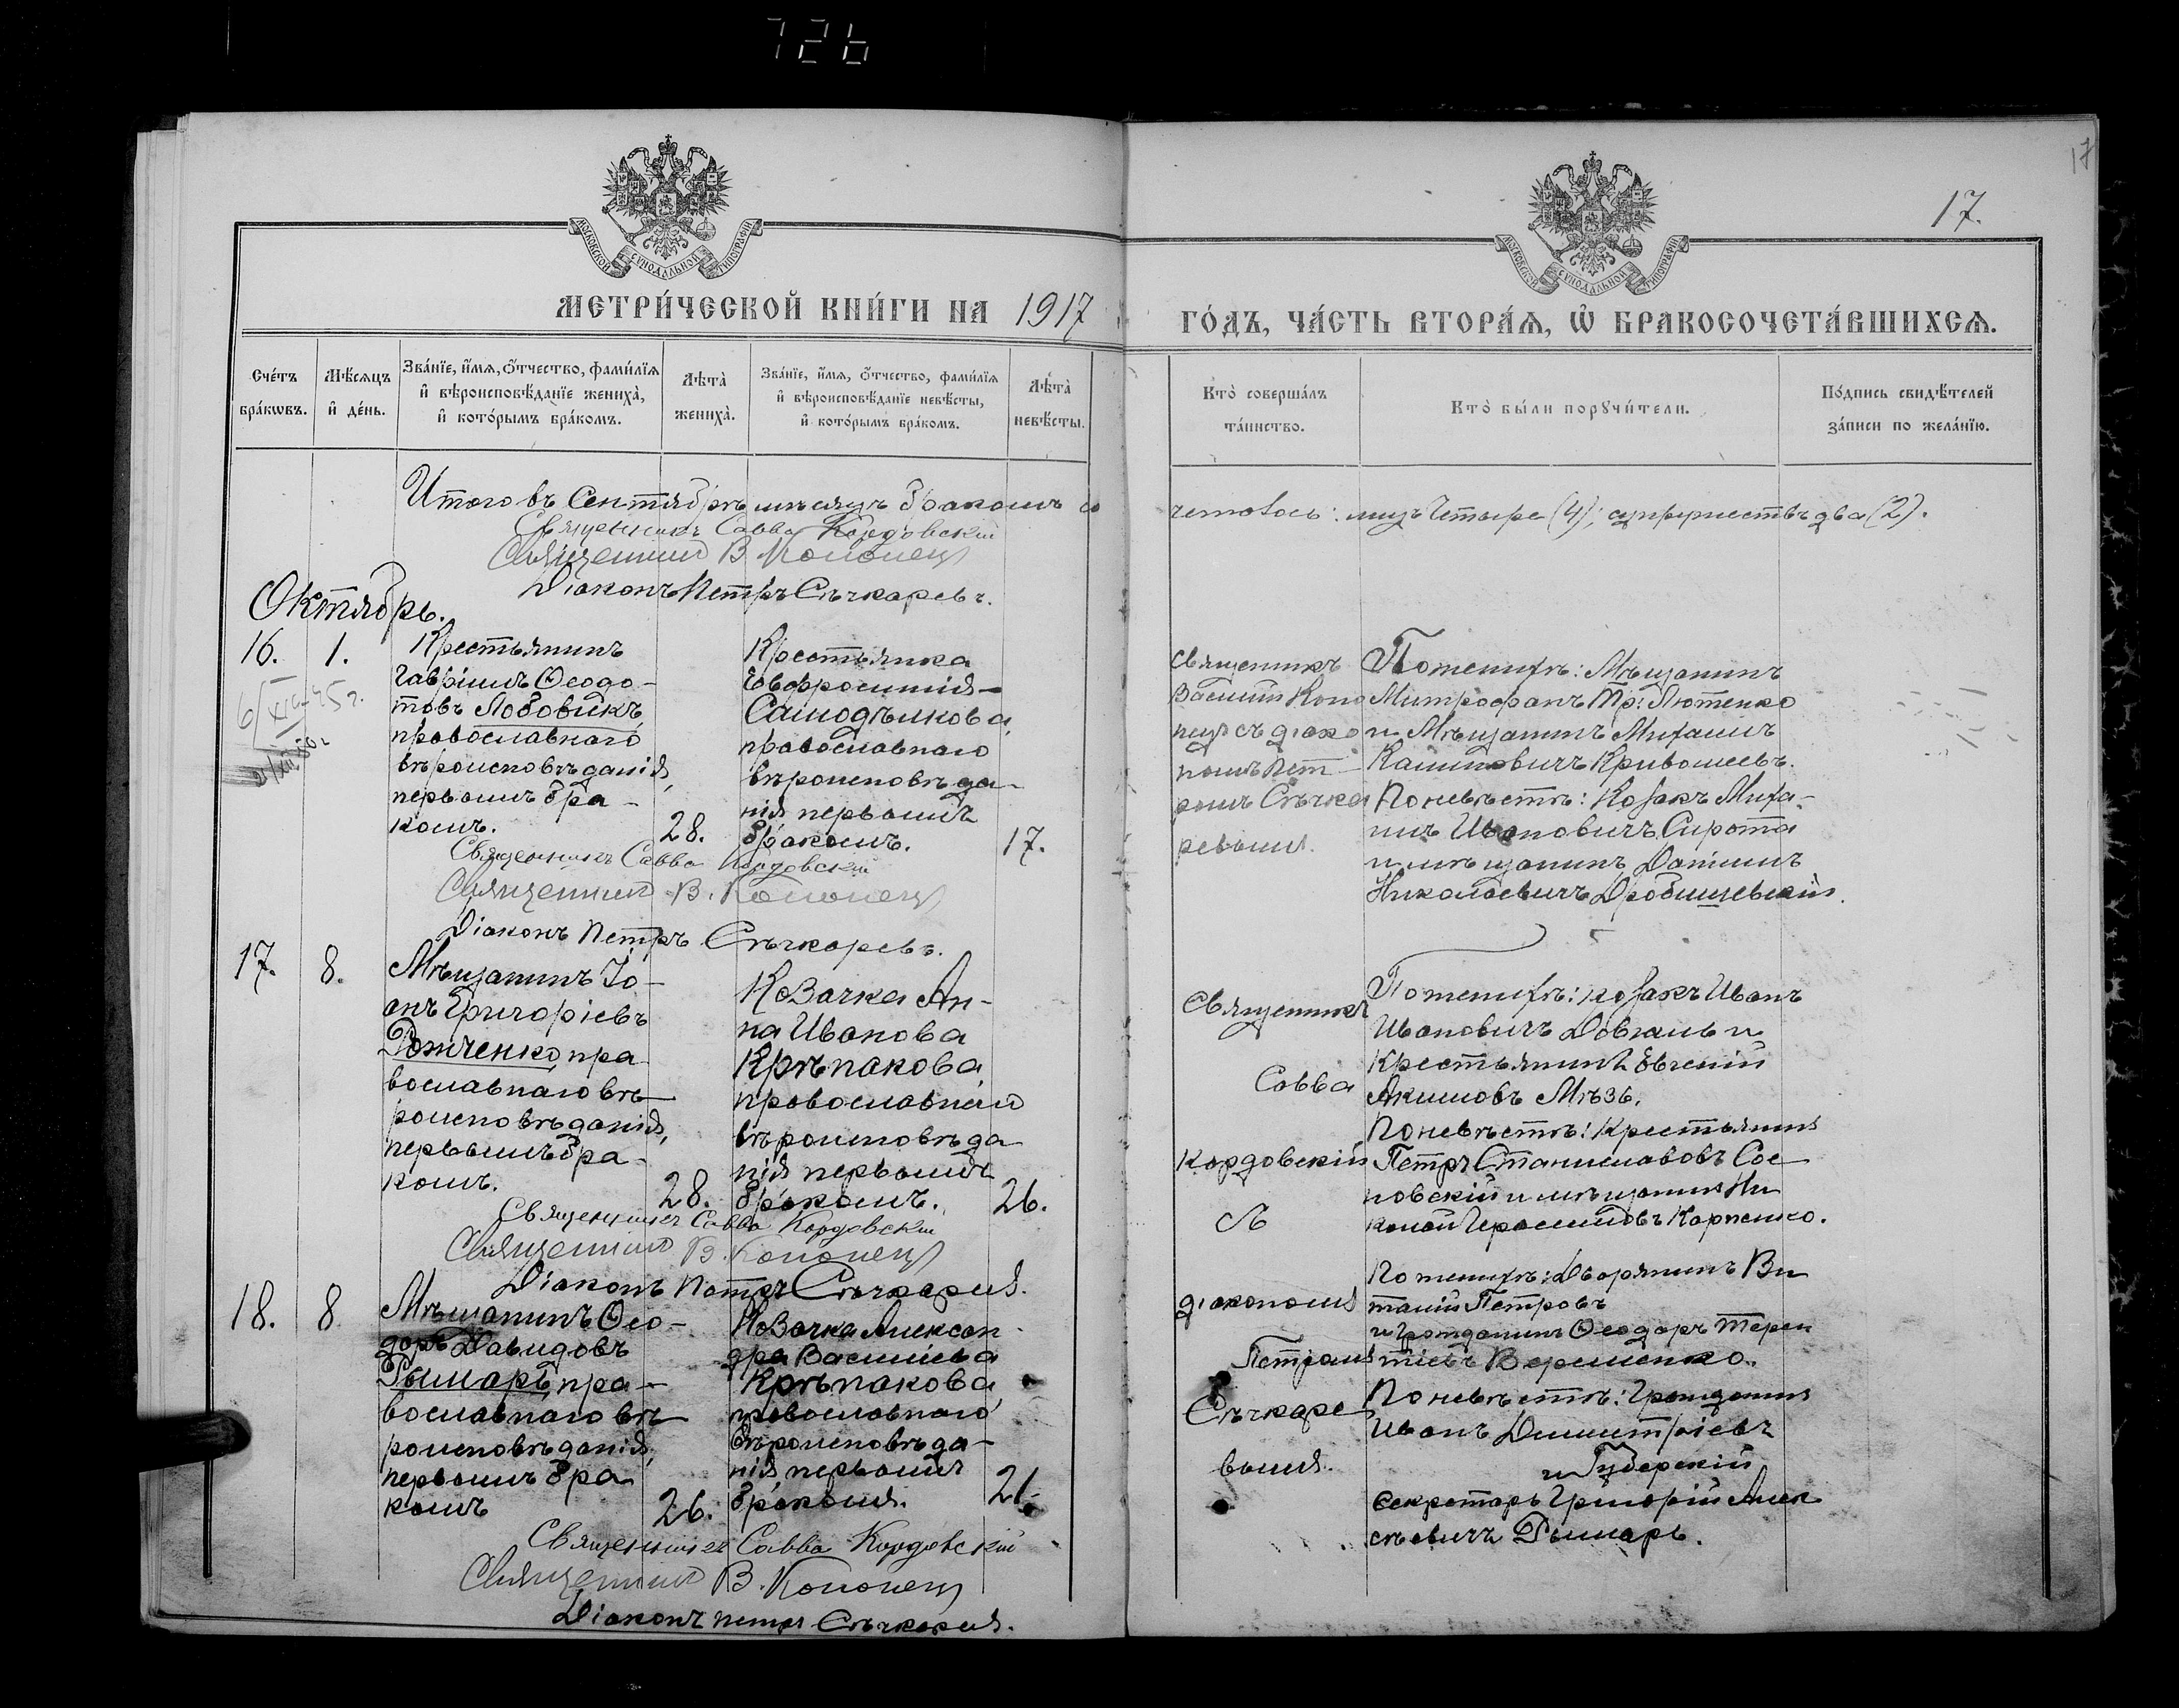 726
17
17.
МОСКОВСКОЙ СУНОДАЛЬНОЙ ТИПОГРАФІИ
МОСКОВСКОЙ СУНОДАЛЬНОЙ ТИПОГРАФІИ
МЕТРИ́ЧЕСКОЙ КНИ́ГИ НА 1917
ГО́ДЪ, ЧА́СТЬ ВТОРА́Ѧ, Ѡ҆ БРАКОСОЧЕТА́ВШИХСѦ.
Сче́тъ бра́кѡвъ.
Мѣ́сѧцъ и҆ де́нь.
Зва́нїе, и҆́мѧ, ѻ҆́тчество, фами́лїѧ и҆ вѣроисповѣ́данїе жениха̀, и҆ кото́рымъ бра́комъ.
Лѣ́та жениха̀.
Зва́нїе, и҆́мѧ, ѻ҆́тчество, фами́лїѧ и҆ вѣроисповѣ́данїе невѣ́сты, и҆ кото́рымъ бра́комъ.
Лѣ́та невѣ́сты.
Кто̀ соверша́лъ та́инство.
Кто̀ бы́ли порꙋчи́тели.
По́дпись свидѣ́телей за́писи по жела́нїю.
Итого въ Сентябрѣ мѣсяцѣ бракомъ со
четолось: муж. четыре (4); супружествъ два (2).
Священникъ Савва Кордовскій
Священник В. Кононец
Діаконъ Петръ Сѣчкаревъ.
Октябрь.
16. 1.
Крестьянинъ
Гавріилъ Ѳеодо-
товъ Лобовикъ,
православнаго
вѣроисповѣданія,
первымъ бра-
комъ.
28.
Крестьянка
Евфросинія
Самодѣлкова,
православнаго
вѣроисповѣда-
нія первымъ
бракомъ.
17.
Священникъ
Василій Коно
нецъ съ діако
номъ Пет-
ромъ Сѣчка
ревымъ.
По женихѣ: Мѣщанинъ
Митрофанъ Гр: Лютенко
и Мѣщанинъ Михаилъ
Кривошеевъ.
По невѣстѣ: Козакъ Миха-
илъ Ивановичъ Сирота
и мѣщанинъ Даніилъ
Николаевичъ Дробишевскій.
Священникъ Савва Кордовскій
Священник В. Кононец
Діаконъ Петръ Сѣчкаревъ.
17. 8.
Мѣщанинъ Іо-
анъ Григоріевъ
Романченко, пра-
вославнаго вѣ-
роисповѣданія,
первымъ бра-
комъ.
28.
Козачка Ан-
на Иванова
Крѣпакова,
православнаго
вѣроисповѣда
нія первымъ
бракомъ.
26.
Священникъ
Савва
Кордовскій
съ
По женихѣ: козакъ Иванъ
Ивановичъ Довгаль и
Крестьянинъ Евгеній
Акимовъ
По невѣстѣ: Крестьянинъ
Петръ Станиславовъ Сос
новскій и мѣщанинъ Ни
колай Герасимовъ Карпенко.
Священникъ Савва Кордовскій
Священник В. Кононец
Діаконъ Петръ Сѣчкаревъ.
18. 8
Мѣщанинъ Ѳео-
доръ Давидовъ
Рымарь, пра-
вославнаго вѣ-
роисповѣданія,
первымъ бра
комъ
26.
Козачка Алексан-
дра Василіева
Крѣпакова,
православнаго
вѣроисповѣда-
нія первымъ
бракомъ.
21.
діакономъ
Петромъ
Сѣчкаре
вымъ.
По женихѣ: Дворянинъ Ви
талій Петровъ
и Гражданинъ Ѳеодоръ Терен
тіевъ Веременко.
По невѣстѣ: Гражданинъ
Иванъ Димитріевъ
и Губерскій
секретарь Григорій Алек
сѣевичъ Рымарь.
Священникъ Савва Кордовскій
Священник В. Кононец
Діаконъ Петръ Сѣчкаревъ.